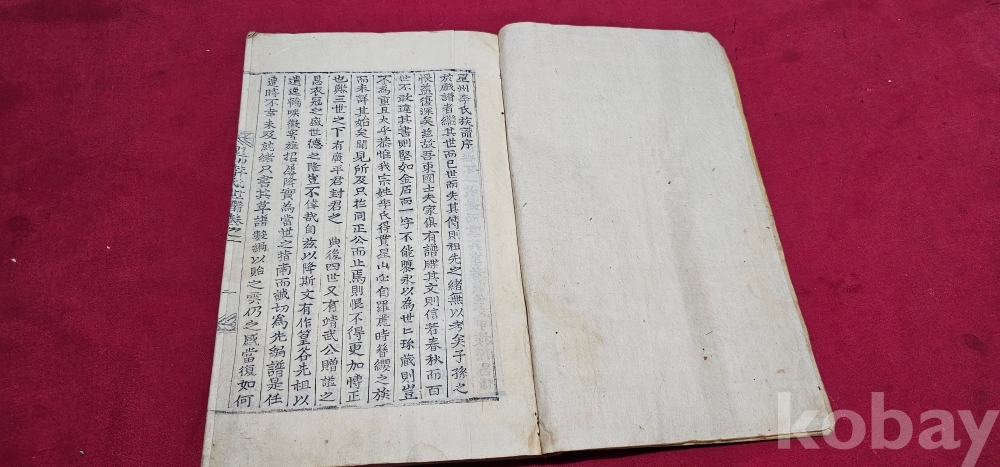 星州李氏族譜序
於戲譜者繼其世而已世而失其傳則祖先之緒無以考矣子孫之
恨蓋復深矣玆故吾東國士夫家俱有譜牒其文則信若春秋而百
世不敢違其書則堅如金石而一字不能墜永以爲世〻珍藏則豈
不爲重且大乎恭惟我宗姓李氏得貫星山出自羅麗時簪纓之族
而未詳其始矣聞見所及只抬同正公而止焉則恨不得更加愽正
也然三世之下有廣平君封君之 典後四世又有靖武公贈謚之
恩衣冠之盛世德之隆豈不偉哉自玆以降斯文有作篁谷先祖以
遺逸 旌招屢降實爲當世之指南而纖切爲先編譜是任
遭時不幸未及就緖只書其草譜 綱以貽之雲仍之感當復如何
李氏世譜卷之一
kobay